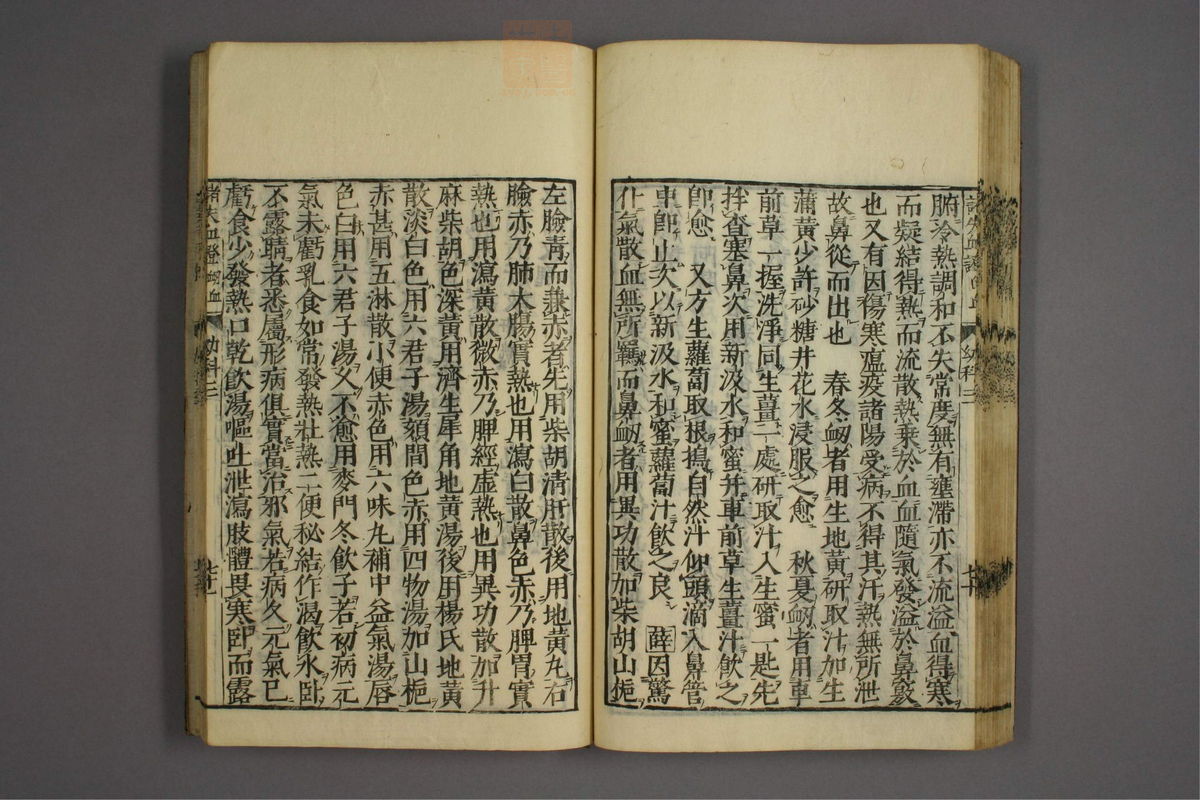 腑冷熱調和不失常度無有壅滯亦不流溢血得寒
而凝結得熱而流散熱乗於血血隨氣發溢於鼻竅
也又有因傷寒瘟疫諸陽受病不得其汗熱無所泄
故鼻從而出也 春冬衂者用生地黃研取汁加生
蒲黃少許砂糖井花水浸服之愈 秋夏衂者用車
前草一握洗淨同生薑一處研取汁入生蜜一匙先
拌査塞鼻次用新汲水和蜜并車前草生薑汁飲之
卽愈 又方生蘿蔔取根搗自然汁仰頭滴入鼻管
中卽止次以新汲水和蜜蘿蔔汁飲之良 薛因驚
仆氣散血無所羈而鼻衂者用異功散加柴胡山梔
左臉青而兼赤者先用柴胡清肝散後用地黃丸右
臉赤乃肺大腸實熱也用瀉白散鼻色赤乃脾胃實
熱也用瀉黃散微赤乃脾經虛熱也用異功散加升
麻柴胡色深黃用濟生犀角地黃湯後用楊氏地黃
散淡白色用六君子湯頦間色赤用四物湯加山梔
赤甚用五淋散小便赤色用六味丸補中益氣湯唇
色白用六君子湯久不愈用麥門冬飲子若初病元
氣未虧乳食如常發熱壯熱二便秘結作渴飲水臥
不露睛者悉屬形病俱實當治邪氣若病久元氣已
虧食少發熱口乾飲湯嘔吐泄瀉肢體畏寒臥而露
諸失血證衂血 幼科三